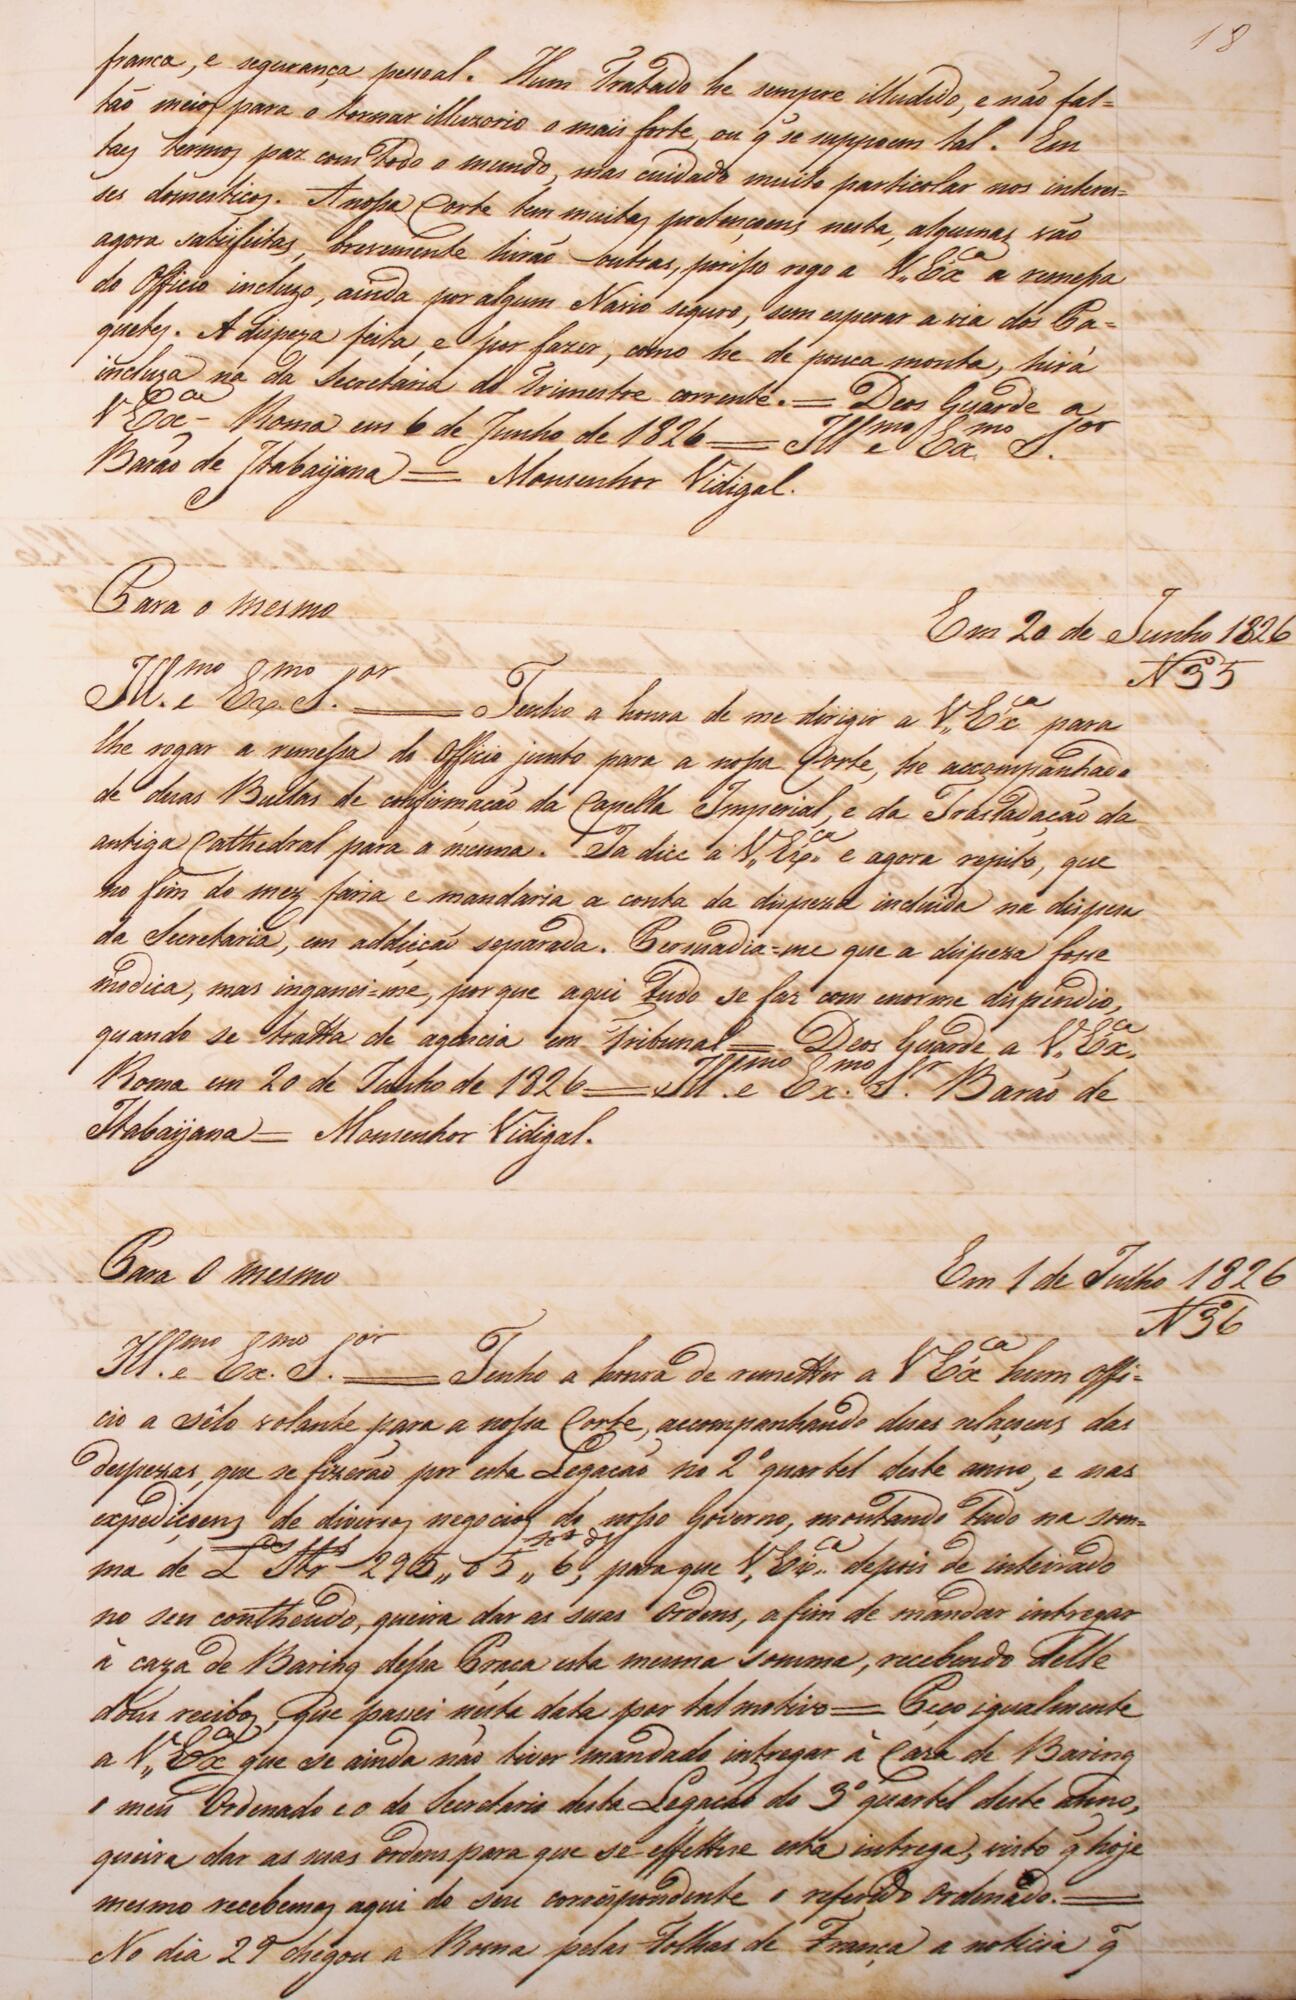 18
franca, e segurança pessoal. Hum Tratado he sempre illudido, e não fal=
tão meios para o tornar illuzorio o mais forte, ou q̃ se suppoem tal. Em
taes termos paz com todo o mundo, mas cuidado muito particolar nos interes=
ses domesticos. A nossa Corte tem muitas pretençoens nesta, algumas vão
agora satisfeitas, brevemente hirão outras, porisso rogo a V. Exca a remessa
do Officio incluzo, ainda por algum Navio seguro, sem esperar a via dos Pa=
quetes. A dispeza feita, e por fazer, como he de pouca monta, hirá
incluza na da Secretaria do Trimestre corrente. = Deos Guarde a
V Exca - Roma em 6 de Junho de 1826 = Illmo e Exmo Sor
Barão de Itabaijana = Monsenhor Vidigal.
Para o mesmo
Em 20 de Junho 1826
N 35
Illmo e Exmo Sor = Tenho a honra de me dirigir a V. Exca para
lhe rogar a remessa do Officio junto para a nossa Corte, he accompanhado
de duas Bullas de confirmação da Capella Imperial, e da Trasladação da
antiga Cathedral para a mesma. Ja dice a V. Exca e agora repito, que
no fim do mez faria e mandaria a conta da dispeza incluida na dispesa
da Secretaria, em addicção separada. Persuadia=me que a dispeza fosse
modica, mas inganei=me, porque aqui tudo se faz com enorme dispendio,
quando se tratta de agencia em Tribunal = Deos Guarde a V. Exca
Roma em 20 de Junho de 1826 = Illmo e Exmo Sr Barão de
Itabaijana = Monsenhor Vidigal.
Para o mesmo
Em 1 de Julho 1826
N 36
Illmo e Exmo Sor = Tenho a honra de remetter a V Exca hum Offi=
cio a sêlo volante para a nossa Corte, accompanhando duas relaçoens das
despezas, que se fizerão por esta Legacão no 2º quartel deste anno, e nas
expediçoens de diversos negocios do nosso Governo, montando tudo na som=
ma de L Str 295,, 05,, 6, para que V. Exca depois de inteirado
no seu contheudo, queira dar as suas Ordens, a fim de mandar intregar
à caza de Baring dessa Praça esta mesma somma, recebendo delle
dous recibos, que passei nesta data por tal motivo = Peço igualmente
a V. Exca que se ainda não tiver mandado intregar à Caza de Baring
o meu Ordenado e o do Secretario desta Legação do 3º quartel deste Anno,
queira dar as suas ordens para que se effettue esta intrega, visto q̃ hoje
mesmo recebemos aqui do seu correspondente o referido Ordenado. =
No dia 29 chegou a Roma pelas Folhas de França a noticia q̃